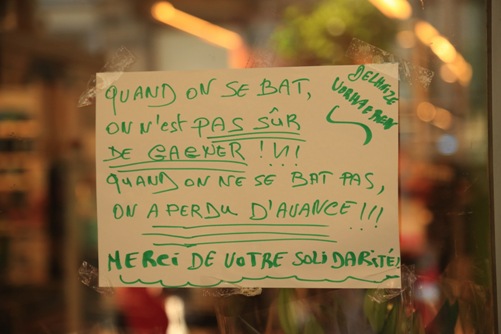 QUAND ON SE BAT,
ON N'EST PAS SÛR
DE GAGNER !!/!
QUAND ON NE SE BAT PAS,
ON A PERDU D'AVANCE!!!
MERCI DE VOTRE SOLIDARITÉ!
DELHAIZE